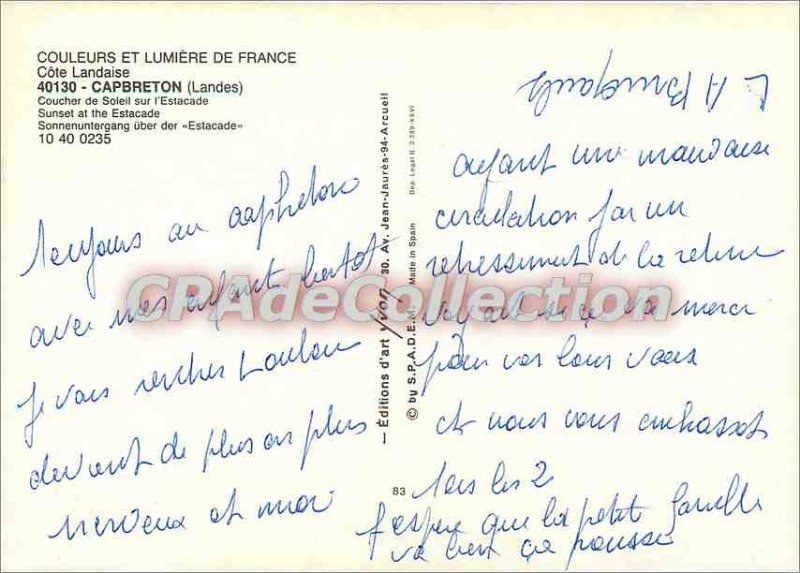 COULEURS ET LUMIÈRE DE FRANCE
Côte Landaise
40130 - CAPBRETON (Landes)
Coucher de Soleil sur l'Estacade
Sunset at the Estacade
Sonnenuntergang über der «Estacade»
10 40 0235
Toujours au capbreton
avec mes enfant bientot
je vais rentrer Loulou
devient de plus en plus
nerveux et moi
— Éditions d'art yvon, 30, Av. Jean-Jaurès-94-Arcueil
© by S.P.A.D.E.M. Made in Spain Dep. Legal B. 2.369-XXVI
83
ayant une mauvaise
circulation par un
retressiment de la retine
voyant si ça va merci
pour vos bons vœux
et nous vous embrassons
tous les 2
J'espere que la petit famille
va bien ça pousse
CPAdeCollection